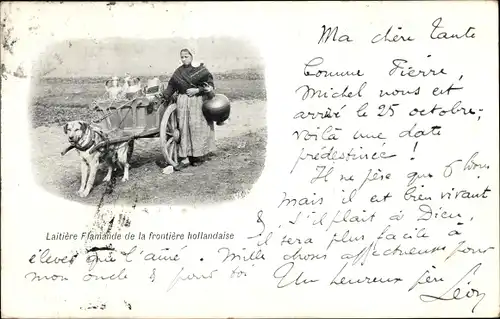 Ma chère Tante
Comme Pierre,
Michel nous est
arrivé le 25 octobre,
voilà une date
prédestinée !
Il ne pèse que 6 livres
mais il est bien vivant
& s'il plait à Dieu,
il sera plus facile à
Laitière Flamande de la frontière hollandaise
élever que l'aîné. Mille choses affectueuses pour
mon oncle & pour toi
Un heureux père
Léon